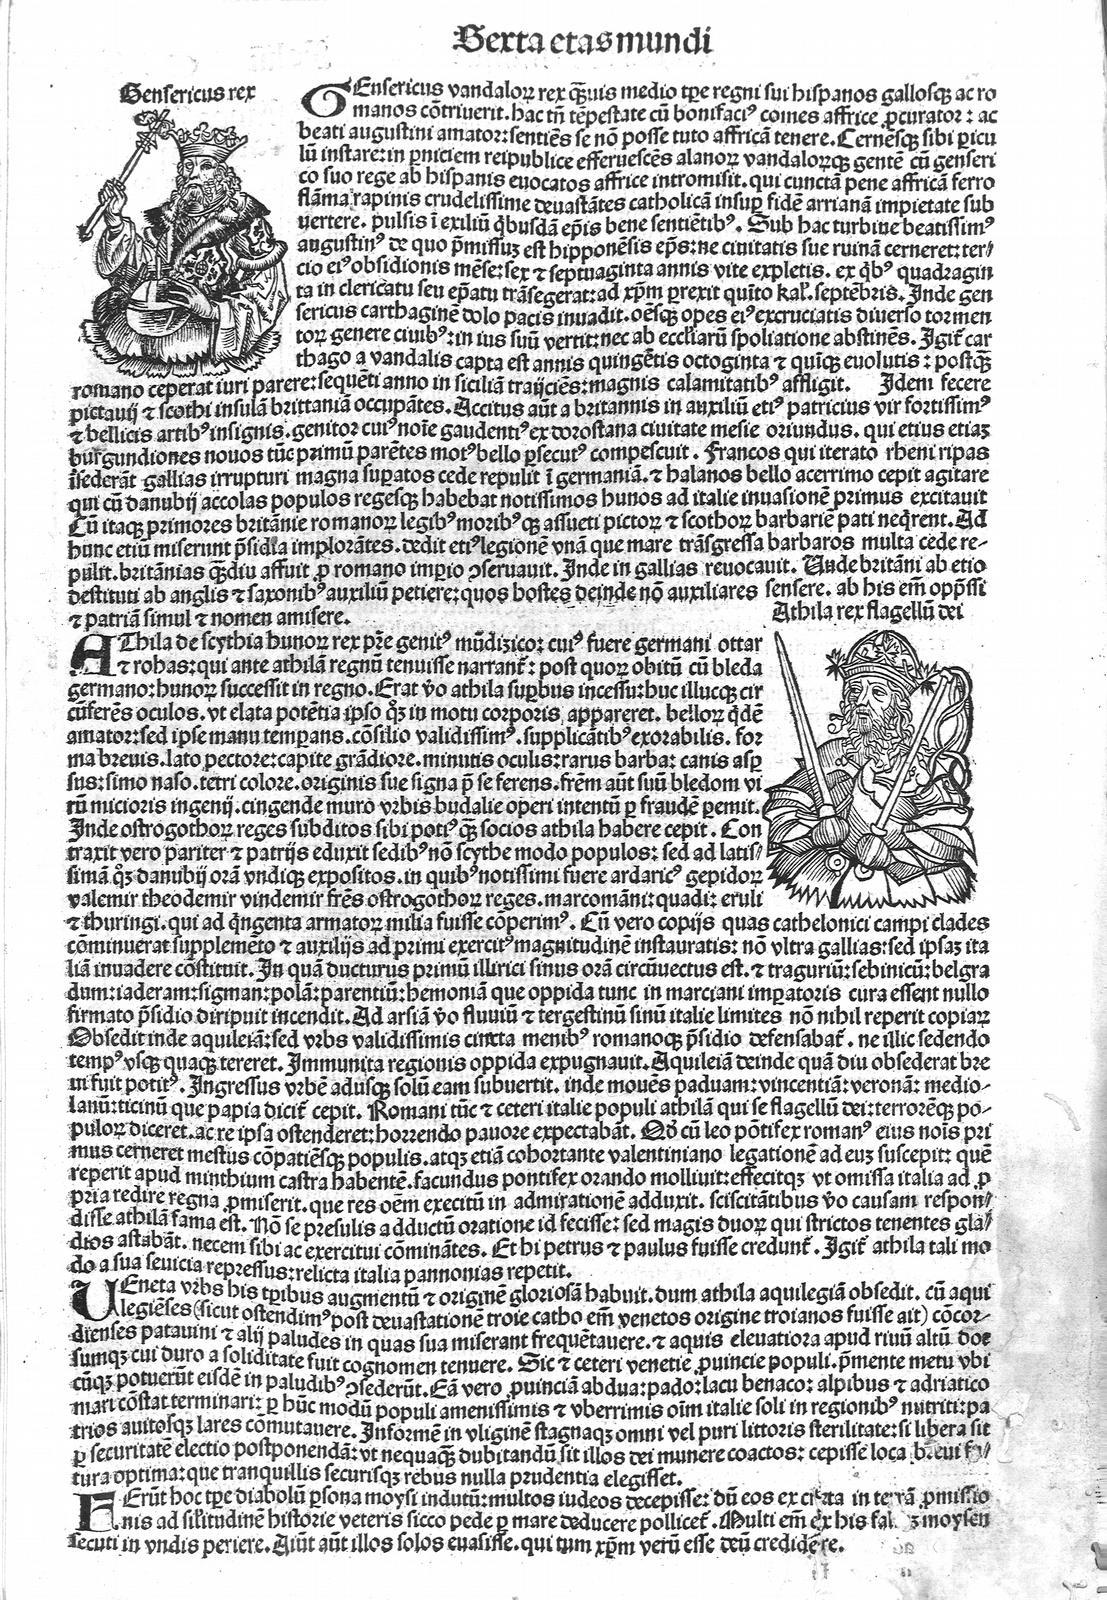 Sexta etas mundi
Gensericus rex
GEnsericus vandaloꝝ rex qͣ̃uis medio tꝑe regni sui hispanos gallosqꝫ ac ro
manos cõtriverit. hac tñ tẽpestate cũ bonifaciꝰ comes affrice ꝓcurator: ac
beati augustini amator: sentiẽs se nõ posse tuto affricã tenere. Cernẽsqꝫ sibi ꝑicu
lũ instare: in ꝑniciem reipublice effervescẽs alanoꝝ vandaloꝝqꝫ gentẽ cũ genseri
co suo rege ab hispanis evocatos affrice intromisit. qui cunctã pene affricã ferro
flãma rapinis crudelissime devastãtes catholicã insuꝑ fidẽ arrianã impietate sub
vertere. pulsis ĩ exiliũ qͥbusdã eꝑis bene sentiẽtibꝰ. Sub hac turbine beatissimꝰ
augustinꝰ de quo p̃missuꝫ est hipponẽsis ep̃s: ne civitatis sue ruinã cerneret: ter⸗
cio eiꝰ obsidionis mẽse: sex ⁊ septuaginta annis vite expletis. ex qͥbꝰ quadragin
ta in clericatu seu ep̃atu trãsegerat: ad xp̃m ꝑrexit quĩto kal̃. septẽbris. Inde gen
sericus carthaginẽ dolo pacis invadit. oẽsqꝫ opes eiꝰ excruciatis diverso tormen
toꝝ genere civibꝰ: in ius suũ vertit: nec ab eccl̃iarũ spoliatione abstinẽs. Igit̃ car
thago a vandalis capta est annis quingẽtis octoginta ⁊ quĩqꝫ evolutis: postqͣ̃
romano ceperat iuri parere: sequẽti anno in siciliã traijciẽs: magnis calamitatibꝰ affligit. Idem fecere
pictavij ⁊ scothi insulã brittaniã occupãtes. Accitus aũt a britannis in auxiliũ etiꝰ patricius vir fortissimꝰ
⁊ bellicis artibꝰ insignis. genitor cuiꝰ noĩe gaudentiꝰ ex dorostana civitate mesie oriundus. qui etius etiaꝫ
burgundiones novos tũc primũ parẽtes motꝰ bello ꝑsecutꝰ compescuit. Francos qui iterato rheni ripas
ĩsederat gallias irrupturi magna suꝑatos cede repulit ĩ germaniã. ⁊ halanos bello acerrimo cepit agitare
qui cũ danubij accolas populos regesqꝫ habebat notissimos hunos ad italie invasionẽ primus excitavit
Cũ itaqꝫ primores britãnie romanoꝝ legibꝰ moribꝰqꝫ assueti pictoꝝ ⁊ scothoꝝ barbariẽ pati neqͥrent. Ad
hunc etiũ miserunt p̃sidia implorãtes. dedit etiꝰ legionẽ vnã que mare trãsgressa barbaros multa cede re⸗
pulit. britãnias qͣ̃diu affuit ꝓ romano imꝑio ꝯservavit. Inde in gallias revocavit. Unde britãni ab etio
destituti ab anglis ⁊ saxonibꝰ auxiliũ petiere: quos hostes deinde nõ auxiliares sensere. ab his em̃ opp̃ssi
⁊ patriã simul ⁊ nomen amisere.
Athila rex flagellũ dei
AThila de scythia hunoꝝ rex pr̃e genitꝰ mũdizico: cuiꝰ fuere germani ottar
⁊ robas: qui ante athilã regnũ tenuisse narrant̃: post quoꝝ obitũ cũ bleda
germano: hunoꝝ successit in regno. Erat v̊o athila suꝑbus incessu: huc illucqꝫ cir
cũferẽs oculos. vt elata potẽtia ipso qͦꝫ in motu corporis appareret. belloꝝ qͥdẽ
amator: sed ipse manu temꝑans. cõsilio validissimꝰ. supplicãtibꝰ exorabilis. for
ma brevis. lato pectore: capite grãdiore. minutis oculis: rarus barba: canis asꝑ
sus: simo naso. tetri colore. originis sue signa p̃ se ferens. fr̃em aũt suũ bledom vi
rũ micioris ingenij. cingende muro vrbis budalie operi intentũ ꝑ fraudẽ ꝑemit.
Inde ostrogothoꝝ reges subditos sibi potiꝰ qͣ̃ socios athila habere cepit. Con
traxit vero pariter ⁊ patrijs eduxit sedibꝰ nõ scythe modo populos: sed ad latis⸗
simã qͦꝫ danubij orã vndiqꝫ expositos. in quibꝰ notissimi fuere ardaricꝰ gepidoꝝ
valemir theodemir vindemir fr̃es ostrogothoꝝ reges. marcomãni: quadi: eruli
⁊ thuringi. qui ad qͥngenta armatoꝝ milia fuisse cõperimꝰ. Cũ vero copijs quas cathelonici campi clades
cõminuerat supplemẽto ⁊ auxilijs ad primi exercitꝰ magnitudinẽ instauratis: nõ vltra gallias: sed ipsaꝫ ita
liã invadere cõstituit. In quã ducturus primũ illirici sinus orã circũvectus est. ⁊ traguriũ: sebinicũ: belgra
dum: iaderam: sigman: polã: parentiũ: hemoniã que oppida tunc in marciani imꝑatoris cura essent nullo
firmato p̃sidio diripuit incendit. Ad arsiã v̊o fluviũ ⁊ tergestinũ sinũ italie limites nõ nihil reperit copiaꝝ
Obsedit inde aquileiã: sed vrbs validissimis cincta menibꝰ romanoqꝫ p̃sidio defensabat̃. ne illic sedendo
tempꝰ vsqꝫ quaqꝫ tereret. Immunita regionis oppida expugnavit. Aquileiã deinde quã diu obsederat bre
vi fuit potitꝰ. Ingressus vrbẽ adusqꝫ solũ eam subvertit. inde movẽs paduam: vincentiã: veronã: medio⸗
lanũ: ticinũ que papia dicit̃ cepit. Romani tũc ⁊ ceteri italie populi athilã qui se flagellũ dei: terrorẽqꝫ po⸗
puloꝝ diceret. ac re ipsa ostenderet: horrendo pavore expectabãt. Qd̃ cũ leo põtifex romanꝰ eius noĩs pri
mus cerneret mestus cõpatiẽsqꝫ populis. atqꝫ etiã cohortante valentiniano legationẽ ad euꝫ suscepit: quẽ
reperit apud minthium castra habentẽ. facundus pontifex orando mollivit: effecitqꝫ vt omissa italia ad ꝓ
pria redire regna ꝓmiserit. que res oẽm exercitũ in admirationẽ adduxit. sciscitãtibus v̊o causam respon⸗
disse athilã fama est. Nõ se presulis adductũ oratione id fecisse: sed magis duoꝝ qui strictos tenentes gla⸗
dios astabãt. necem sibi ac exercitui cõminãtes. Et hi petrus ⁊ paulus fuisse credunt̃. Igit̃ athila tali mo
do a sua sevicia repressus: relicta italia pannonias repetit.
UEneta vrbs his tꝑibus augmentũ ⁊ originẽ gloriosã habuit. dum athila aquilegiã obsedit. cũ aqui
legiẽses (sicut ostendimꝰ post devastationẽ troie catho em̃ venetos origine troianos fuisse ait) cõcor⸗
dienses patavini ⁊ alij paludes in quas sua miserant frequẽtavere. ⁊ aquis elevatiora apud rivũ altũ doe
sumqꝫ cui duro a soliditate fuit cognomen tenuere. Sic ⁊ ceteri venetie ꝓvincie populi. p̃mente metu vbi
cũqꝫ potuerũt eisdẽ in paludibꝰ ꝯsederũt. Eã vero ꝓvinciã abdua: pado: lacu benaco: alpibus ⁊ adriatico
mari cõstat terminari: ꝑ hũc modũ populi amenissimis ⁊ vberrimis oĩm italie soli in regionibꝰ nutriti: pa
trios avitosqꝫ lares cõmutavere. Informẽ in vliginẽ stagnaqꝫ omni vel puri littoris sterilitate: si libera sit
ꝑ securitatẽ electio postponendã: vt nequaqꝫ dubitandũ sit illos dei munere coactos: cepisse loca brevi fu⸗
tura optima: que tranquillis securisqꝫ rebus nulla prudentia elegisset.
FErũt hoc tꝑe diabolũ ꝑsona moysi indutũ: multos iudeos decepisse: dũ eos ex creta in terrã ꝓmissio
nis ad sil̃itudinẽ historie veteris sicco pede ꝑ mare deducere pollicet̃. Multi em̃ ex his moysen
secuti in vndis periere. Aiũt aũt illos solos evasisse. qui tum xp̃m verũ esse deũ credidere.